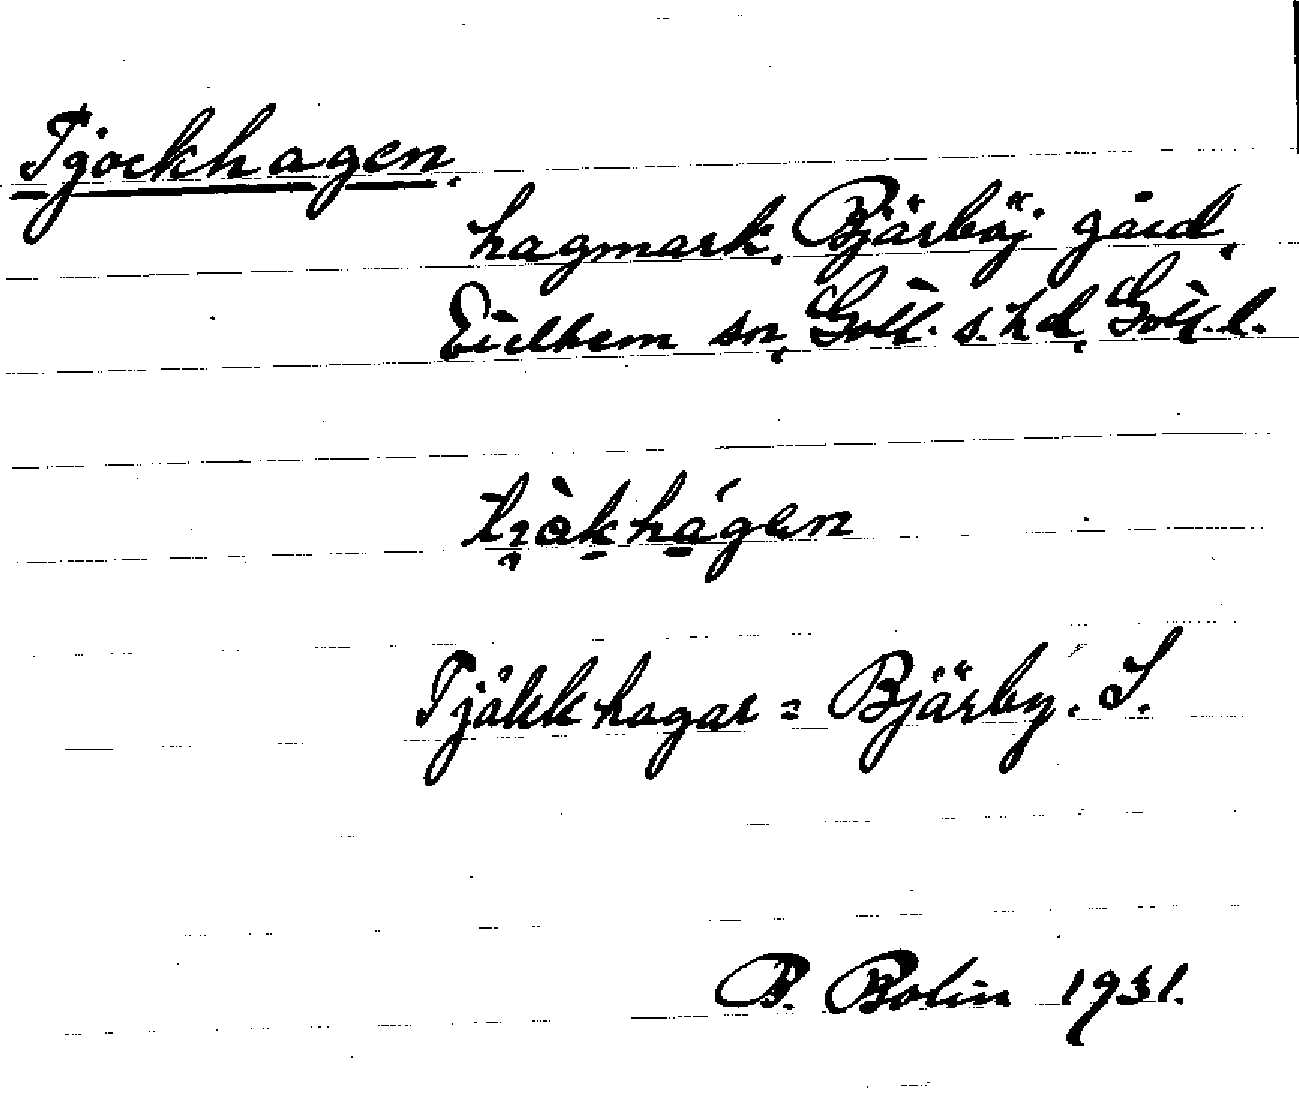 Tjockhagen.
hagmark, Bjärböj gård,
Eidlhem sn, Gotl. s. hd, Gotl. l.
Tjåkkhagar = Bjärby. S.
B. Bolin 1931.